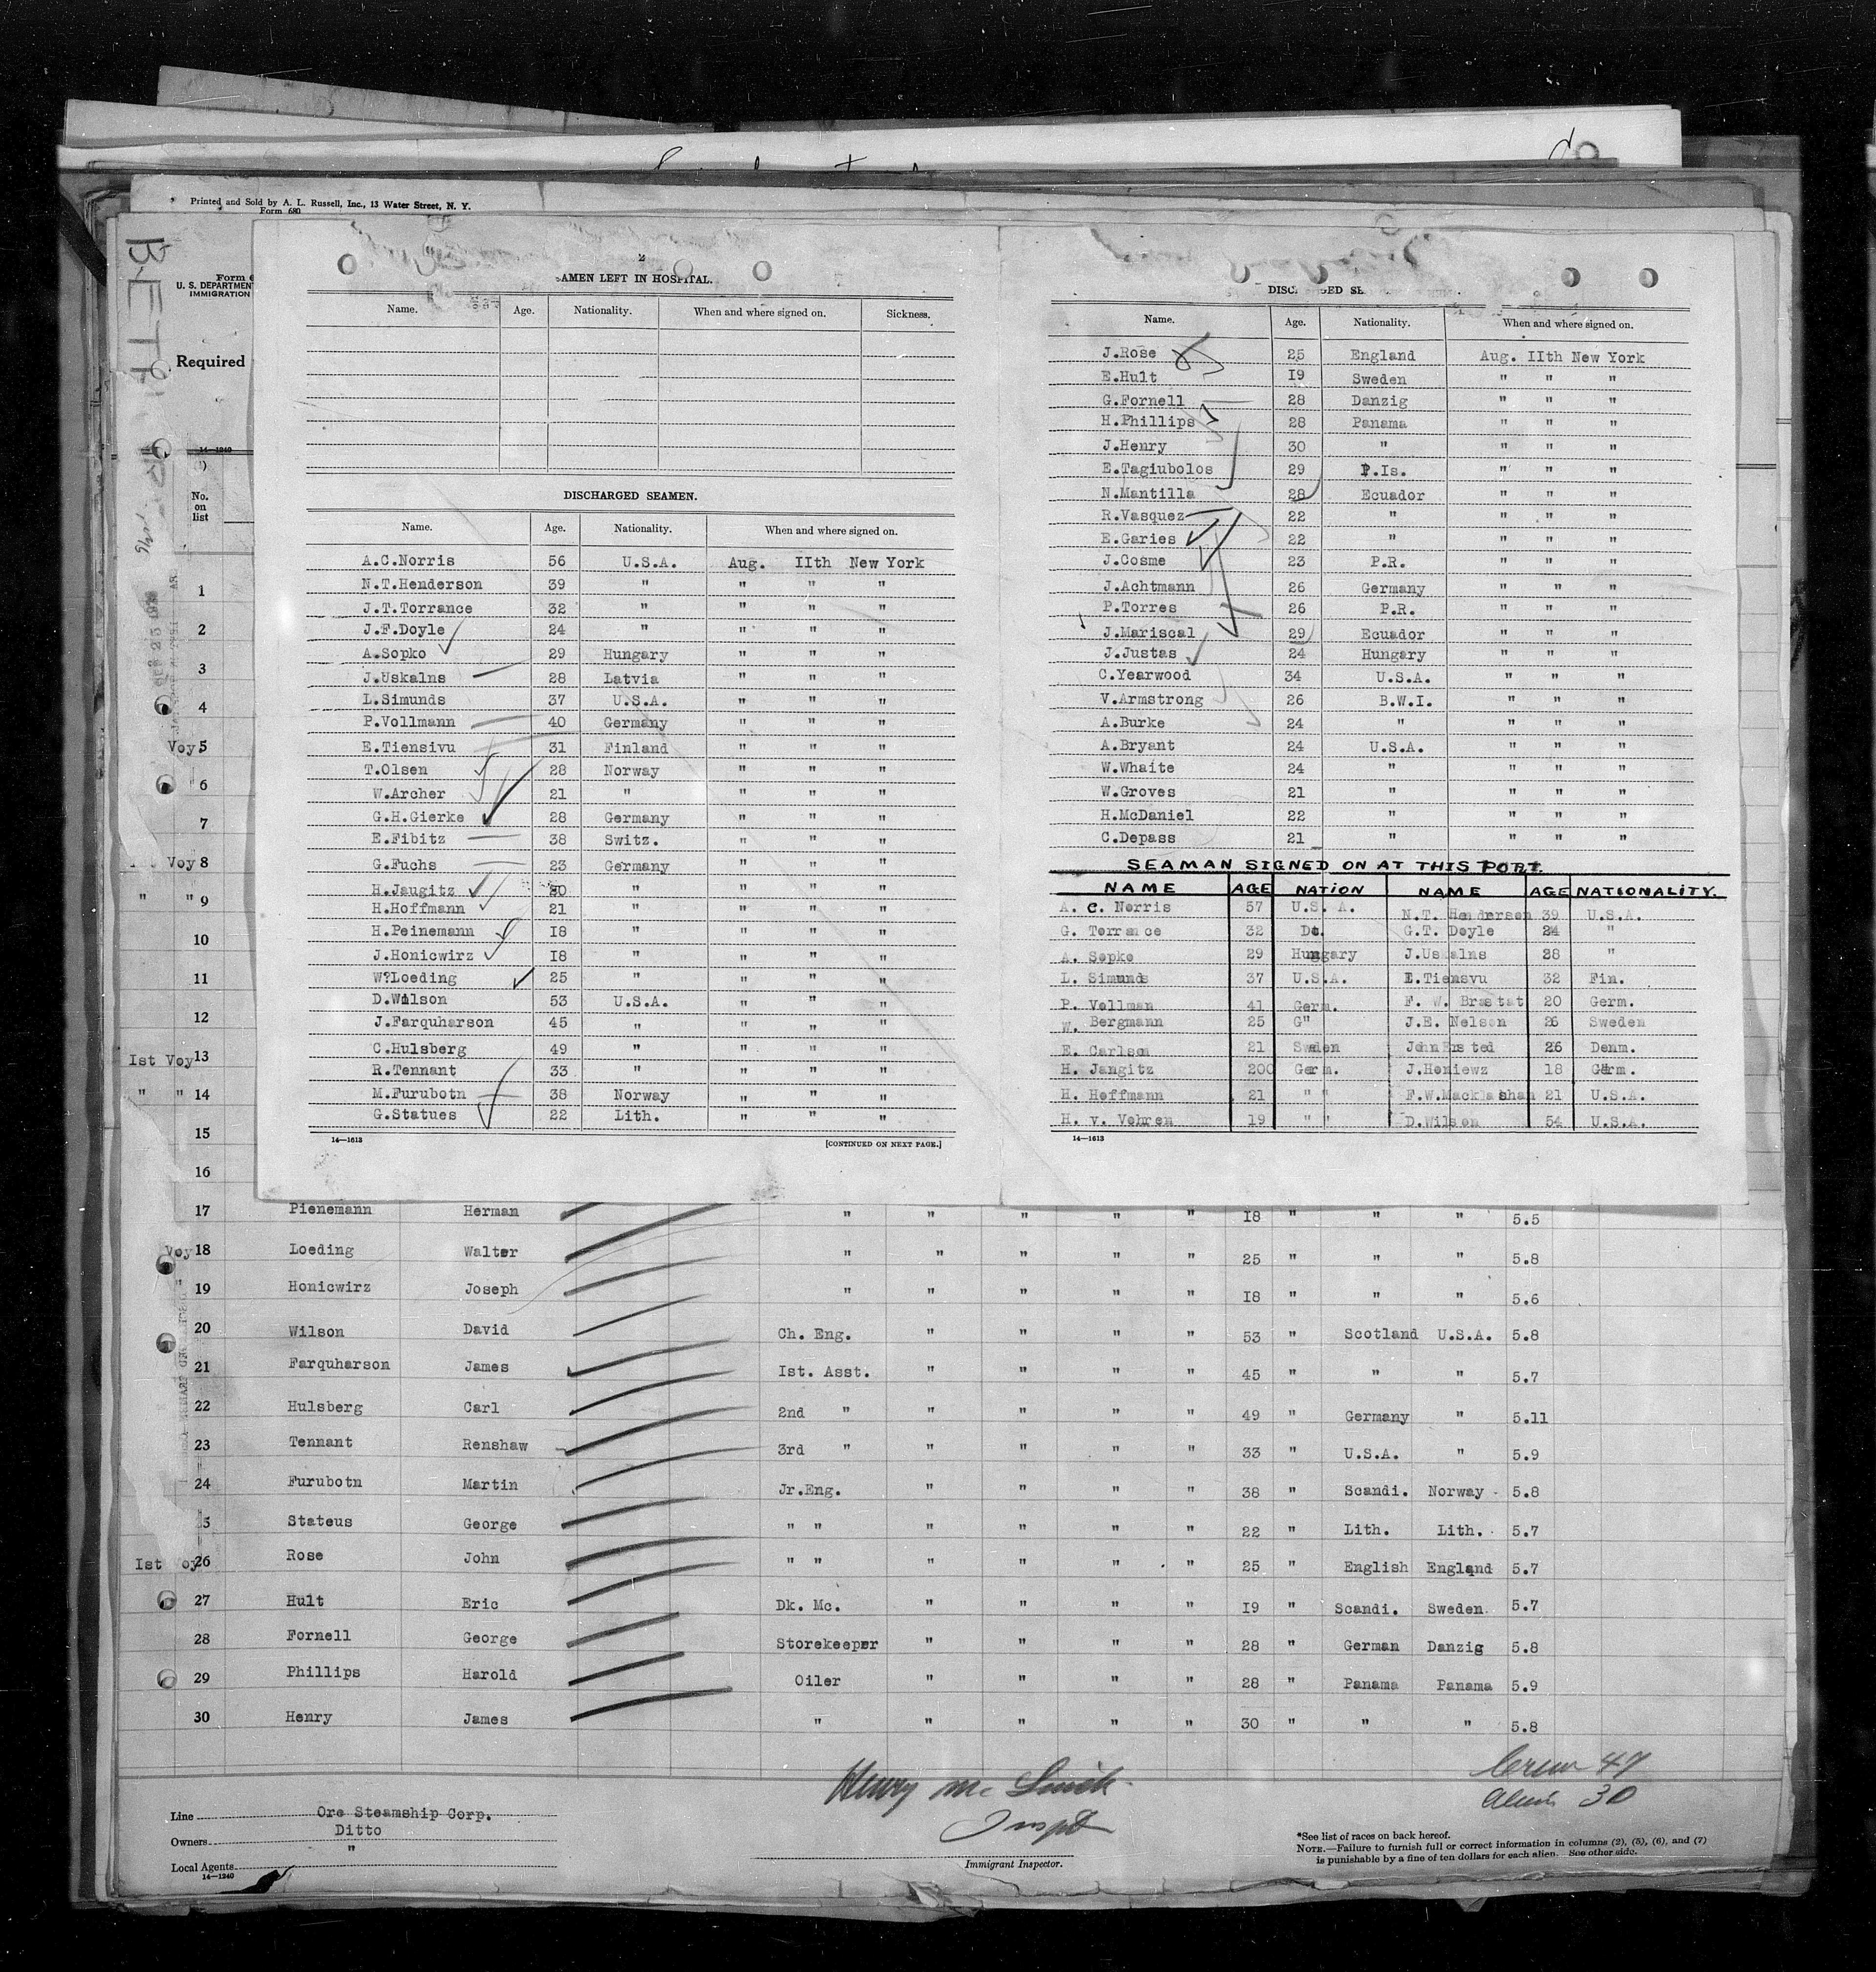 Printed and Sold by A. L. Russell, Inc., 13 Water Street, N. Y.
Form 680
U. S. DEPARTMENT
IMMIGRATION
Required
14—1240
No.
on
list
2
AMEN LEFT IN HOSPITAL.
Name. Age. Nationality. When and where signed on. Sickness.
DISCHARGED SEAMEN.
Name. Age. Nationality. When and where signed on.
A.C.Norris 56 U.S.A. Aug. IIth New York
N.T.Henderson 39 " " " "
J.T.Torrance 32 " " " "
J.F.Doyle 24 " " " "
A.Sopko 29 Hungary " " "
J.Uskalns 28 Latvia " " "
L.Simunds 37 U.S.A. " " "
P.Vollmann 40 Germany " " "
E.Tiensivu 31 Finland " " "
T.Olsen 28 Norway " " "
W.Archer 21 " " " "
G.H.Gierke 28 Germany " " "
E.Fibitz 38 Switz. " " "
G.Fuchs 23 Germany " " "
H.Jaugitz 20 " " " "
H.Hoffmann 21 " " " "
H.Peinemann I8 " " " "
J.Honicwirz I8 " " " "
W?Loeding 25 " " " "
D.Wilson 53 U.S.A. " " "
J.Farquharson 45 " " " "
C.Hulsberg 49 " " " "
R.Tennant 33 " " " "
M.Furubotn 38 Norway " " "
G.Statues 22 Lith. " " "
14—1613 [CONTINUED ON NEXT PAGE.]
Name. Age. Nationality. When and where signed on.
J.Rose 25 England Aug. IIth New York
E.Hult I9 Sweden " " "
G.Fornell 28 Danzig " " "
H.Phillips 28 Panama " " "
J.Henry 30 " " " "
E.Tagiubolos 29 P.Is. " " "
N.Mantilla 28 Ecuador " " "
R.Vasquez 22 " " " "
E.Garies 22 " " " "
J.Cosme 23 P.R. " " "
J.Achtmann 26 Germany " " "
P.Torres 26 P.R. " " "
J.Mariscal 29 Ecuador " " "
J.Justas 24 Hungary " " "
C.Yearwood 34 U.S.A. " " "
V.Armstrong 26 B.W.I. " " "
A.Burke 24 " " " "
A.Bryant 24 U.S.A. " " "
W.Whaite 24 " " " "
W.Groves 21 " " " "
H.McDaniel 22 " " " "
C.Depass 21 " " " "
SEAMAN SIGNED ON AT THIS PORT.
NAME AGE NATION NAME AGE NATIONALITY.
A. C. Norris 57 U.S.A. N.T. Henderson 39 U.S.A.
G. Torrance 32 Do. G.T. Doyle 24 "
A. Sopko 29 Hungary J.Uskalns 28 "
L. Simunds 37 U.S.A. E.Tiensvu 32 Fin.
P. Vollman 41 Germ. F. W. Brastat 20 Germ.
W. Bergmann 25 G" J.E. Nelson 26 Sweden
E. Carlson 21 Sweden 26 Denm.
H. Jangitz 200 Germ. J.Honiewz 18 Germ.
H. Hoffmann 21 " " 21 U.S.A.
H. v. Vehren 19 " " D.Wilson 54 U.S.A.
14—1613
1
2
3
4
Voy 5
6
7
Voy 8
" " 9
10
11
12
Ist Voy 13
" " 14
15
16
17 Pienemann Herman " " " " " I8 " " " 5.5
Voy 18 Loeding Walter " " " " " 25 " " " 5.8
19 Honicwirz Joseph " " " " " I8 " " " 5.6
20 Wilson David Ch. Eng. " " " " 53 " Scotland U.S.A. 5.8
21 Farquharson James Ist. Asst. " " " " 45 " " " 5.7
22 Hulsberg Carl 2nd " " " " " 49 " Germany " 5.11
23 Tennant Renshaw 3rd " " " " " 33 " U.S.A. " 5.9
24 Furubotn Martin Jr.Eng. " " " " 38 " Scandi. Norway 5.8
25 Stateus George " " " " " " 22 " Lith. Lith. 5.7
Ist Voy 26 Rose John " " " " " " 25 " English England 5.7
27 Hult Eric Dk. Mc. " " " " I9 " Scandi. Sweden 5.7
28 Fornell George Storekeeper " " " " 28 " German Danzig 5.8
29 Phillips Harold Oiler " " " " 28 " Panama Panama 5.9
30 Henry James " " " " " 30 " " " 5.8
Crew 47
Aliens 30
Henry Mc
Inspt
Immigrant Inspector.
Line Ore Steamship Corp.
Owners Ditto
Local Agents "
14—1240
*See list of races on back hereof.
NOTE.—Failure to furnish full or correct information in columns (2), (5), (6), and (7)
is punishable by a fine of ten dollars for each alien. See other side.